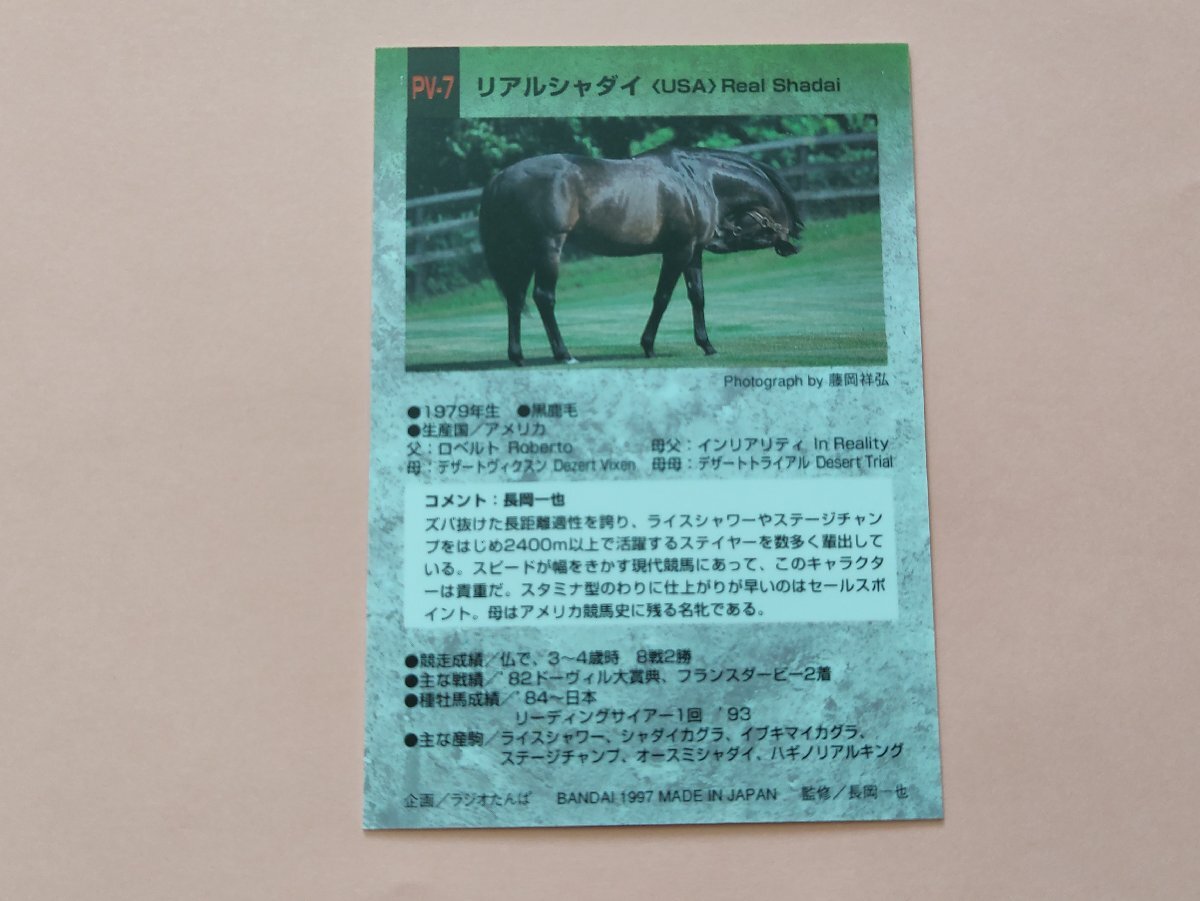 PV-7 リアルシャダイ〈USA〉Real Shadai
Photograph by 藤岡祥弘
●1979年生 ●黒鹿毛
●生産国/アメリカ
父:ロベルト Roberto 母父:インリアリティ In Reality
母:デザートヴィクスン Dezert Vixen 母母:デザートトライアル Desert Trial
コメント:長岡一也
ズバ抜けた長距離適性を誇り、ライスシャワーやステージチャン
プをはじめ2400m以上で活躍するステイヤーを数多く輩出して
いる。スピードが幅をきかす現代競馬にあって、このキャラクタ
ーは貴重だ。スタミナ型のわりに仕上がりが早いのはセールスポ
イント。母はアメリカ競馬史に残る名牝である。
●競走成績/仏で、3〜4歳時 8戦2勝
●主な戦績/'82ドーヴィル大賞典、フランスダービー2着
●種牡馬成績/'84〜日本
リーディングサイアー1回 '93
●主な産駒/ライスシャワー、シャダイカグラ、イブキマイカグラ、
ステージチャンプ、オースミシャダイ、ハギノリアルキング
企画/ラジオたんぱ BANDAI 1997 MADE IN JAPAN 監修/長岡一也